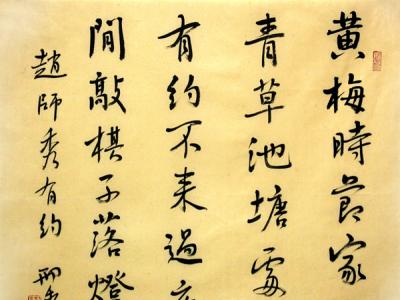 黄梅時節家
青草池塘處
有約不来過夜
閒敲棋子落燈
趙師秀有約 邢